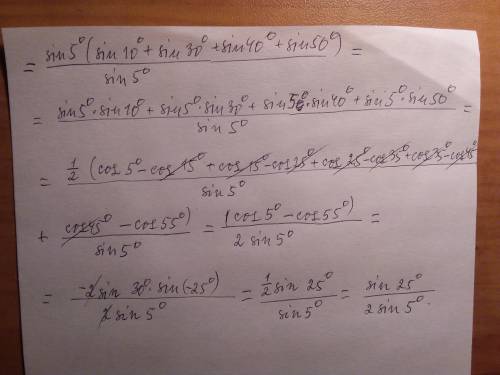 = sin5°(sin 10° + sin 30° + sin 40° + sin 50°) / sin 5° =
= sin5°·sin 10° + sin5°·sin 30° + sin 5°·sin 40° + sin 5°·sin 50° / sin 5° =
= 1/2 (cos 5° - cos 15° + cos 15° - cos 25° + cos 25° - cos 35° + cos 35° - cos 45° / sin 5°
+ cos 45° - cos 55°) / sin 5° = (cos 5° - cos 55°) / 2 sin 5° =
= -2 sin 30°·sin(-25°) / 2 sin 5° = 1/2 sin 25° / sin 5° = sin 25° / 2 sin 5° .